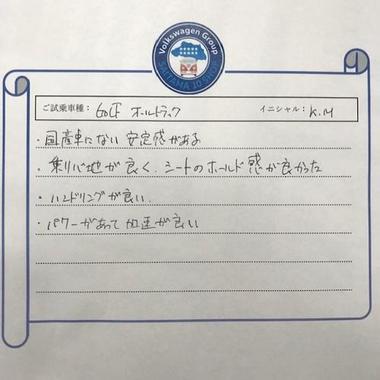 Volkswagen Group
ご試乗車種: GOLF オールトラック イニシャル: K.M
・国産車にない 安定感がある
・乗り心地が良く、シートのホールド感が良かった
・ハンドリングが良い.
・パワーがあって加速が良い